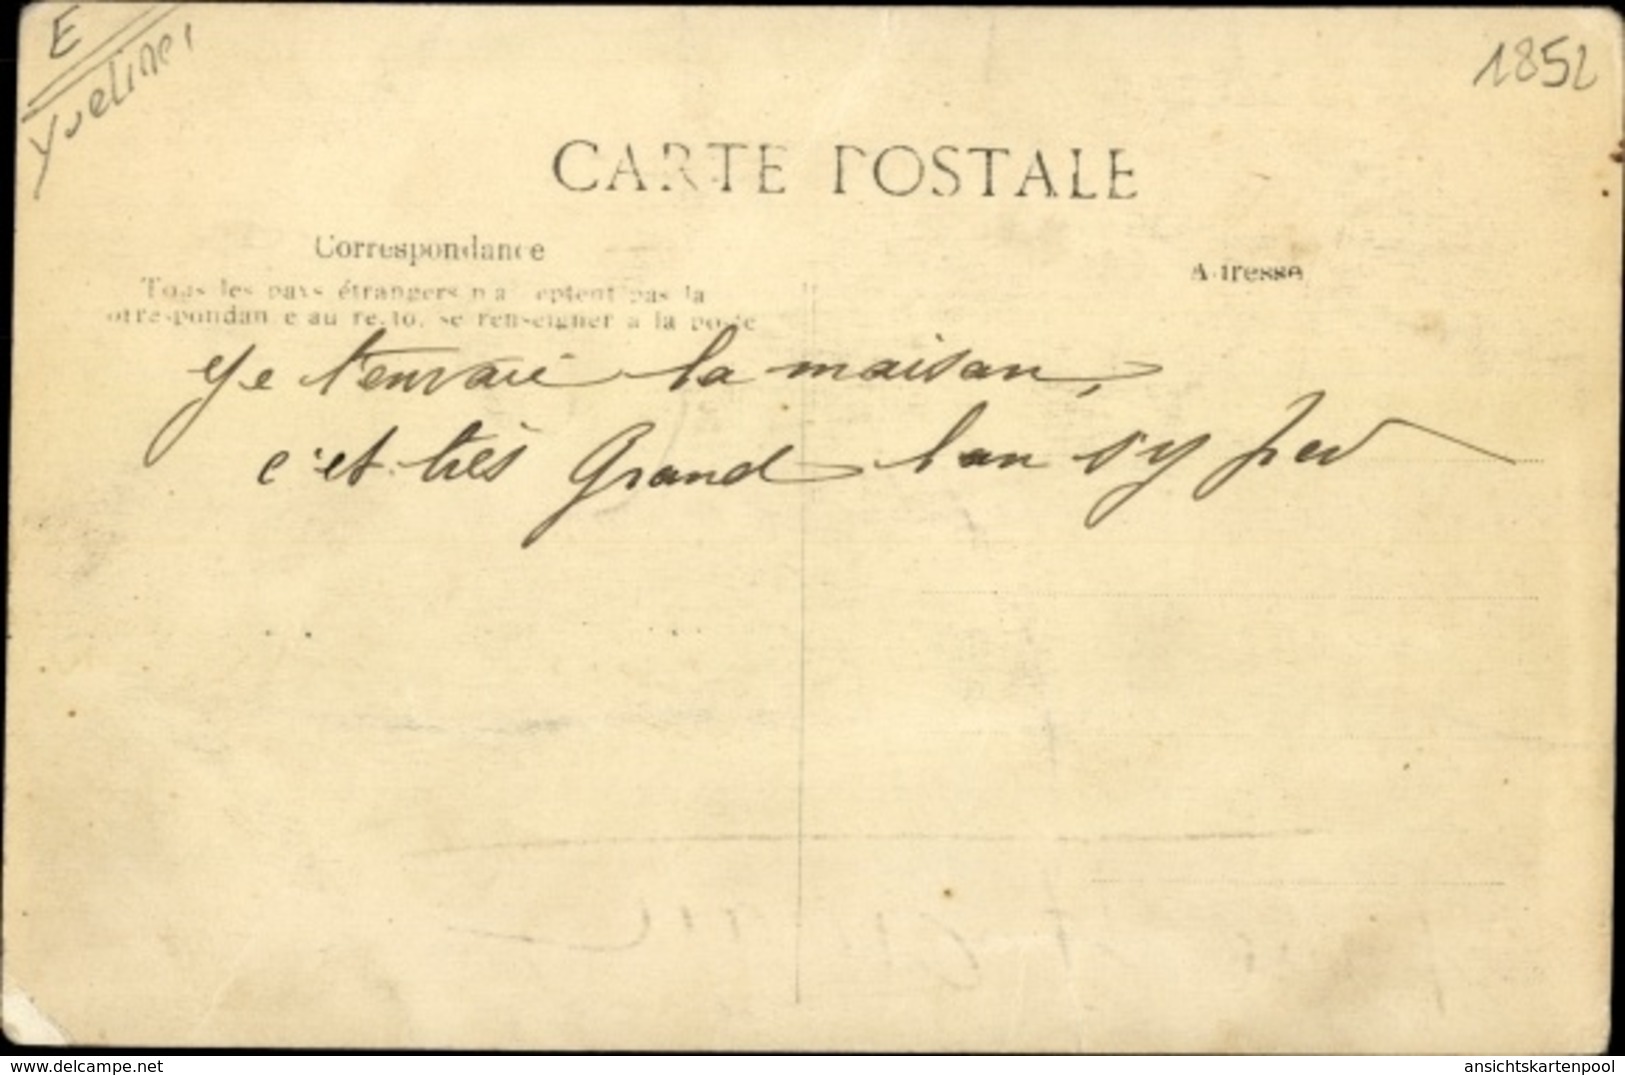 E
Yvelines
1852
CARTE POSTALE
Correspondance
Adresse
Tous les pays étrangers n'acceptent pas la
correspondance au recto, se renseigner à la poste
Je t'envoie la maison,
c'est très grand l'on s'y perd
delcampe.net
ansichtskartenpool